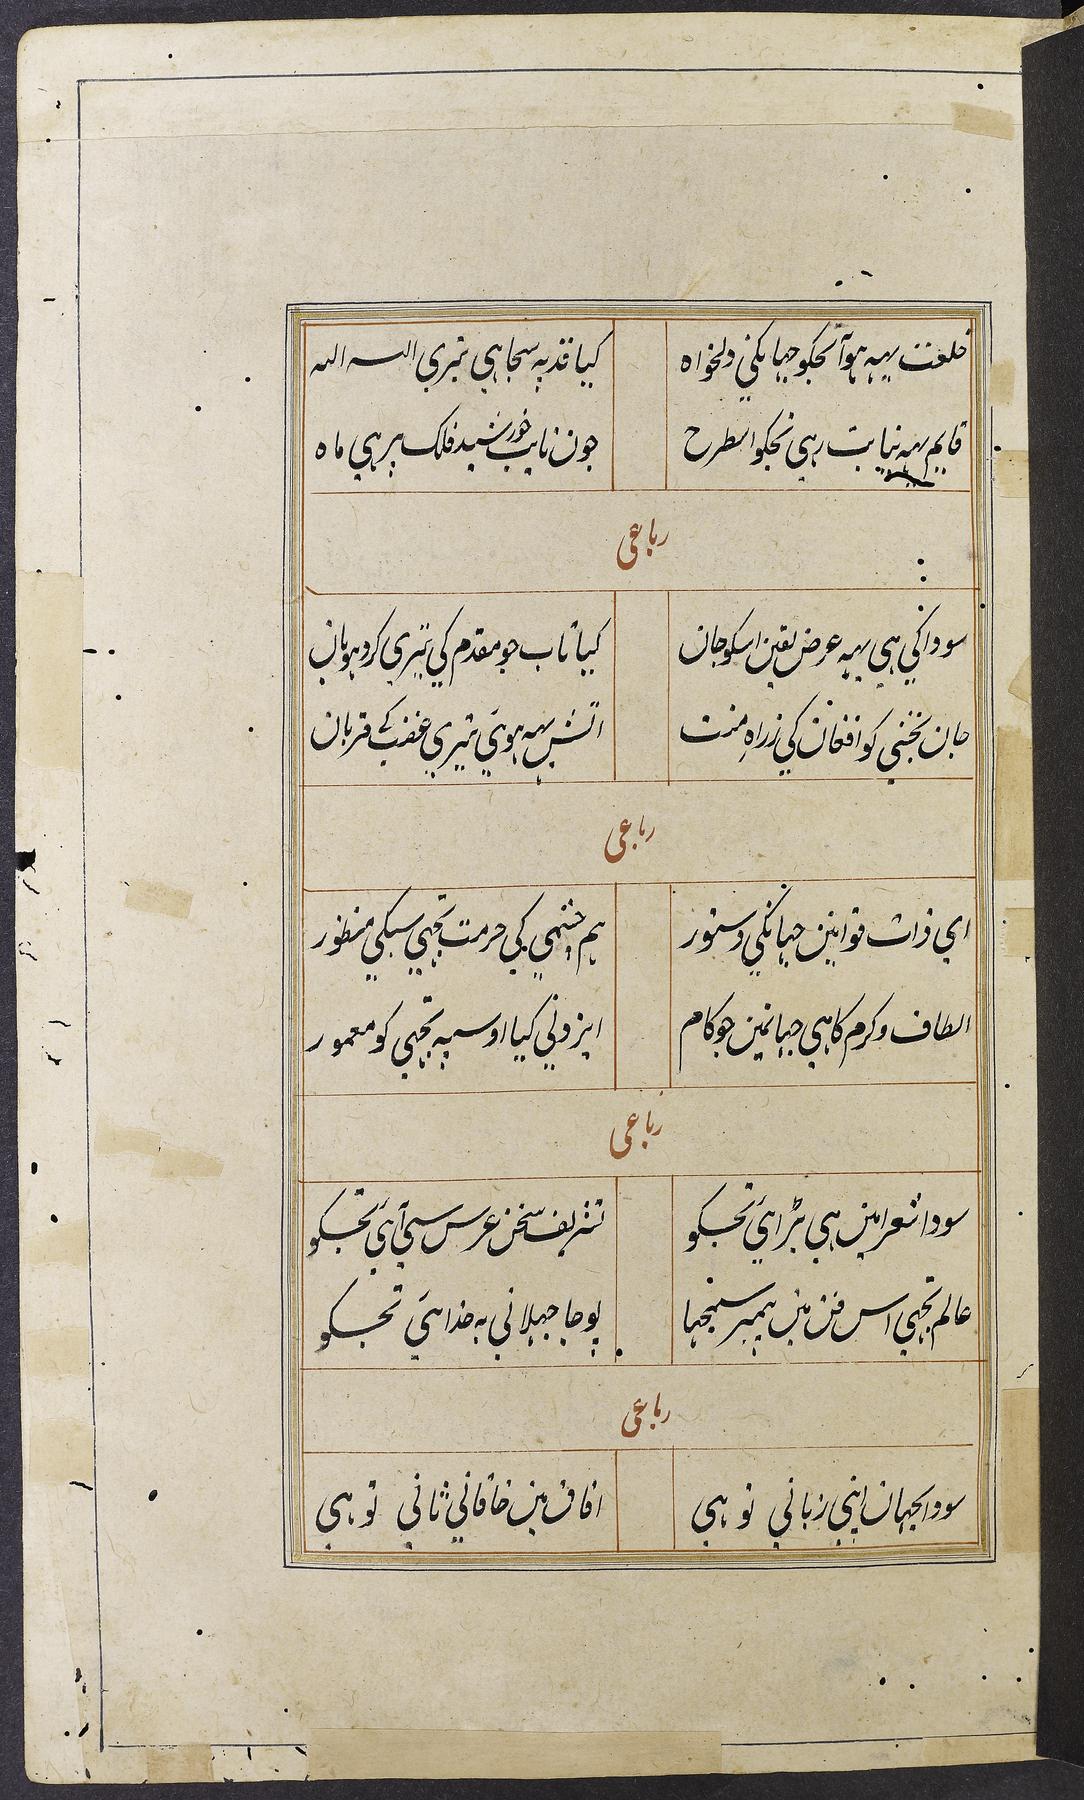 خلعت یهه هوا تجکو جهانکی دلخواه کیا قد په سجا هی تیری الله الله
قایم یهه نیابت رهی تجکو اسطرح جون نایب خورشید فلک پر هی ماه
رباعی
سودا کی هی یهه عرض یقین اسکو جان کیا تاب جو مقدم کی تیری کرد هو بان
جان بخشی کو افغان کی زراه منت اتش یهه هوئی تیری غضب کے قربان
رباعی
ای ذات قوانین جهانکی دستور هم چشمی کی حرمت تجهی سبکی منظور
الطاف و کرم کا هی جهانمین جو کام ایزد نی کیا اوسپه تجهی کو معمور
رباعی
سودا شعرا مین هی بڑائی تجکو تشریف سخن عرس سی آئی تجکو
عالم تجهی اس فن مین پیمبر سمجها پوجا جهلا نی به خدائی تجکو
رباعی
سودا بجهان اپنی زبانی تو هی افاق مین خاقانی ثانی تو هی